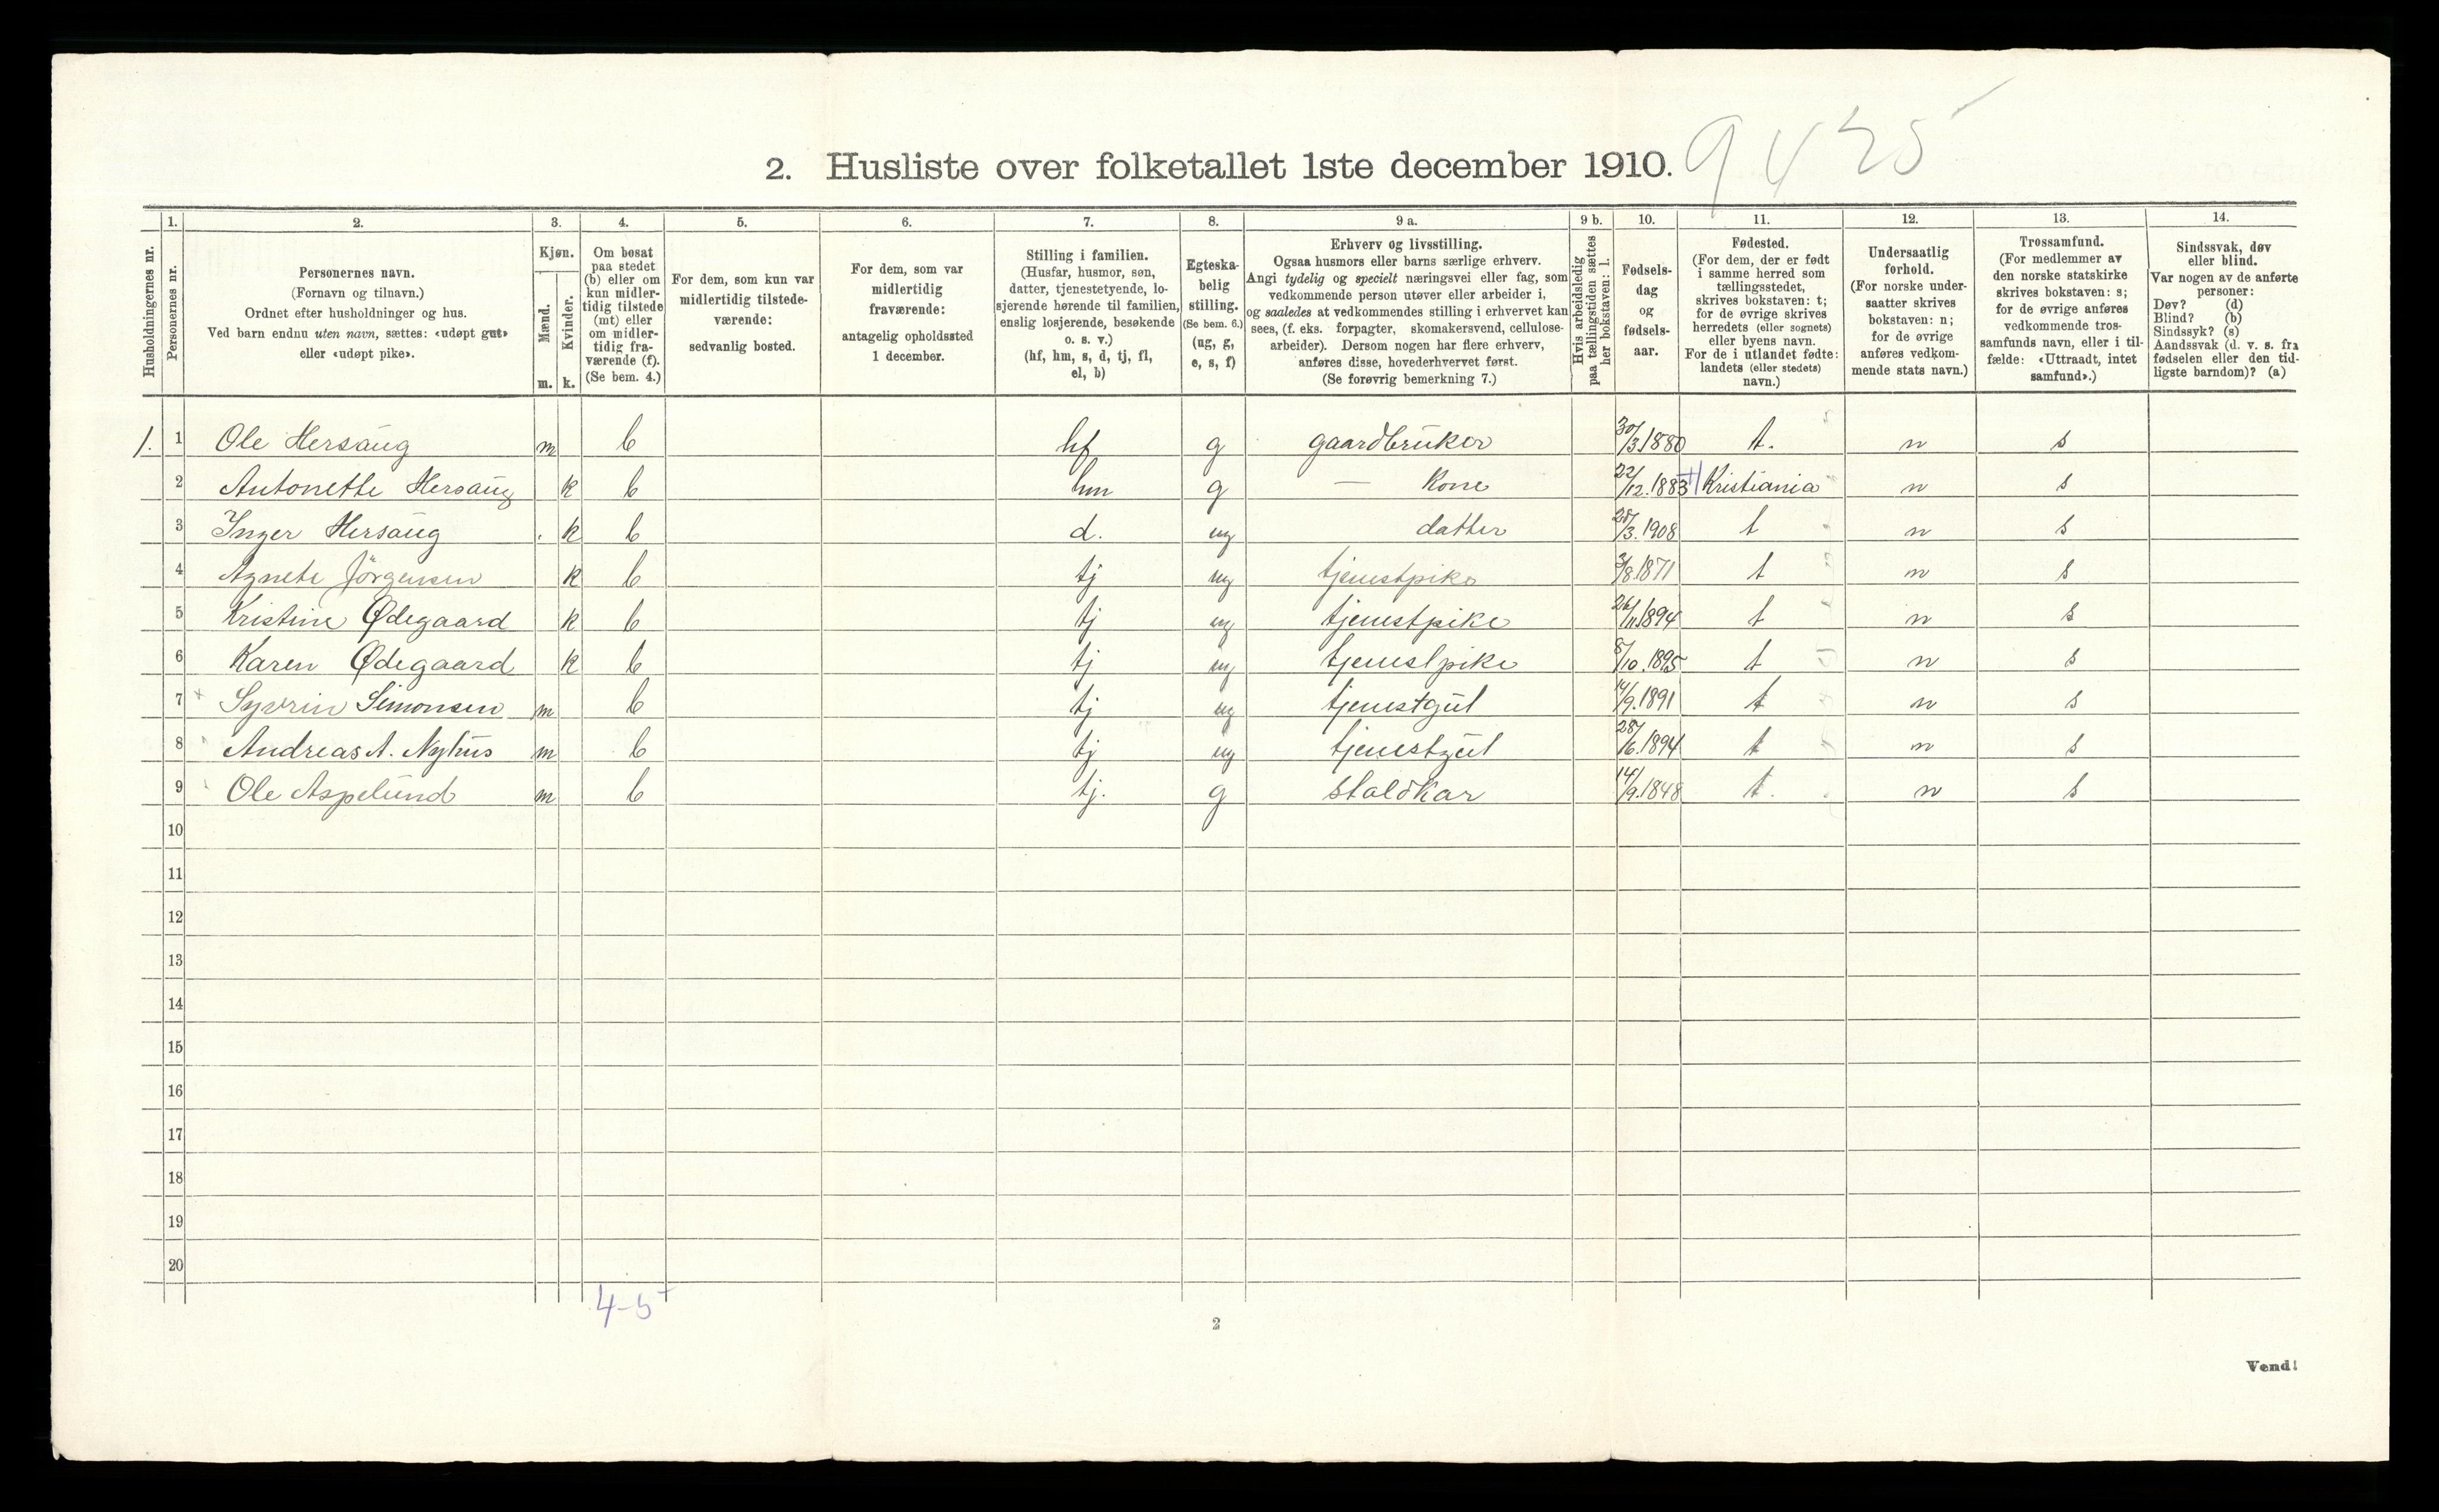 2. Husliste over folketallet 1ste december 1910. 9425
Husholdningernes nr.
1.
Personernes nr.
2.
Personernes navn.
(Fornavn og tilnavn.)
Ordnet efter husholdninger og hus.
Ved barn endnu uten navn, sættes: «udøpt gut»
eller «udøpt pike».
3.
Kjøn.
Mænd.
m.
Kvinder.
k.
4.
Om bosat
paa stedet
(b) eller om
kun midler-
tidig tilstede
(mt) eller
om midler-
tidig fra-
værende (f).
(Se bem. 4.)
5.
For dem, som kun var
midlertidig tilstede-
værende:
sedvanlig bosted.
6.
For dem, som var
midlertidig
fraværende:
antagelig opholdssted
1 december.
7.
Stilling i familien.
(Husfar, husmor, søn,
datter, tjenestetyende, lo-
sjerende hørende til familien,
enslig losjerende, besøkende
o. s. v.)
(hf, hm, s, d, tj, fl,
el, b)
8.
Egteska-
belig
stilling.
(Se bem. 6.)
(ug, g,
e, s, f)
9 a.
Erhverv og livsstilling.
Ogsaa husmors eller barns særlige erhverv.
Angi tydelig og specielt næringsvei eller fag, som
vedkommende person utøver eller arbeider i,
og saaledes at vedkommendes stilling i erhvervet kan
sees, (f. eks. forpagter, skomakersvend, cellulose-
arbeider). Dersom nogen har flere erhverv,
anføres disse, hovederhvervet først.
(Se forøvrig bemerkning 7.)
9 b.
Hvis arbeidsledig
paa tællingstiden sættes
her bokstaven: l.
10.
Fødsels-
dag
og
fødsels-
aar.
11.
Fødested.
(For dem, der er født
i samme herred som
tællingsstedet,
skrives bokstaven: t;
for de øvrige skrives
herredets (eller sognets)
eller byens navn.
For de i utlandet fødte:
landets (eller stedets)
navn.)
12.
Undersaatlig
forhold.
(For norske under-
saatter skrives
bokstaven: n;
for de øvrige
anføres vedkom-
mende stats navn.)
13.
Trossamfund.
(For medlemmer av
den norske statskirke
skrives bokstaven: s;
for de øvrige anføres
vedkommende tros-
samfunds navn, eller i til-
fælde: «Uttraadt, intet
samfund».)
14.
Sindssvak, døv
eller blind.
Var nogen av de anførte
personer:
Døv? (d)
Blind? (b)
Sindssyk? (s)
Aandssvak (d. v. s. fra
fødselen eller den tid-
ligste barndom)? (a)
1. 1 Ole Hersaug m b hf g gaardbruker 30/3.1880 t. n s
2 Antonette Hersaug k b hm g — Kone 22/12.1883 Kristiania n s
3 Inger Hersaug k b d. ug datter 28/3.1908 t n s
4 Agnete Jörgensen k b tj ug tjenestpike 3/8.1871 t n s
5 Kristine Ødegaard k b tj ug tjenestpike 26/11.1894 t n s
6 Karen Ødegaard k b tj ug tjenestpike 8/10.1895 t n s
7 + Syvrin Simonsen m b tj ug tjenestgut 14/9.1891 t n s
8 Andreas A. Nyhus m b tj ug tjenestgut 28/6.1894 t n s
9 Ole Aspelund m b tj. g staldkar 14/9.1848 t. n s
10
11
12
13
14
15
16
17
18
19
20
4-5
2
Vend!